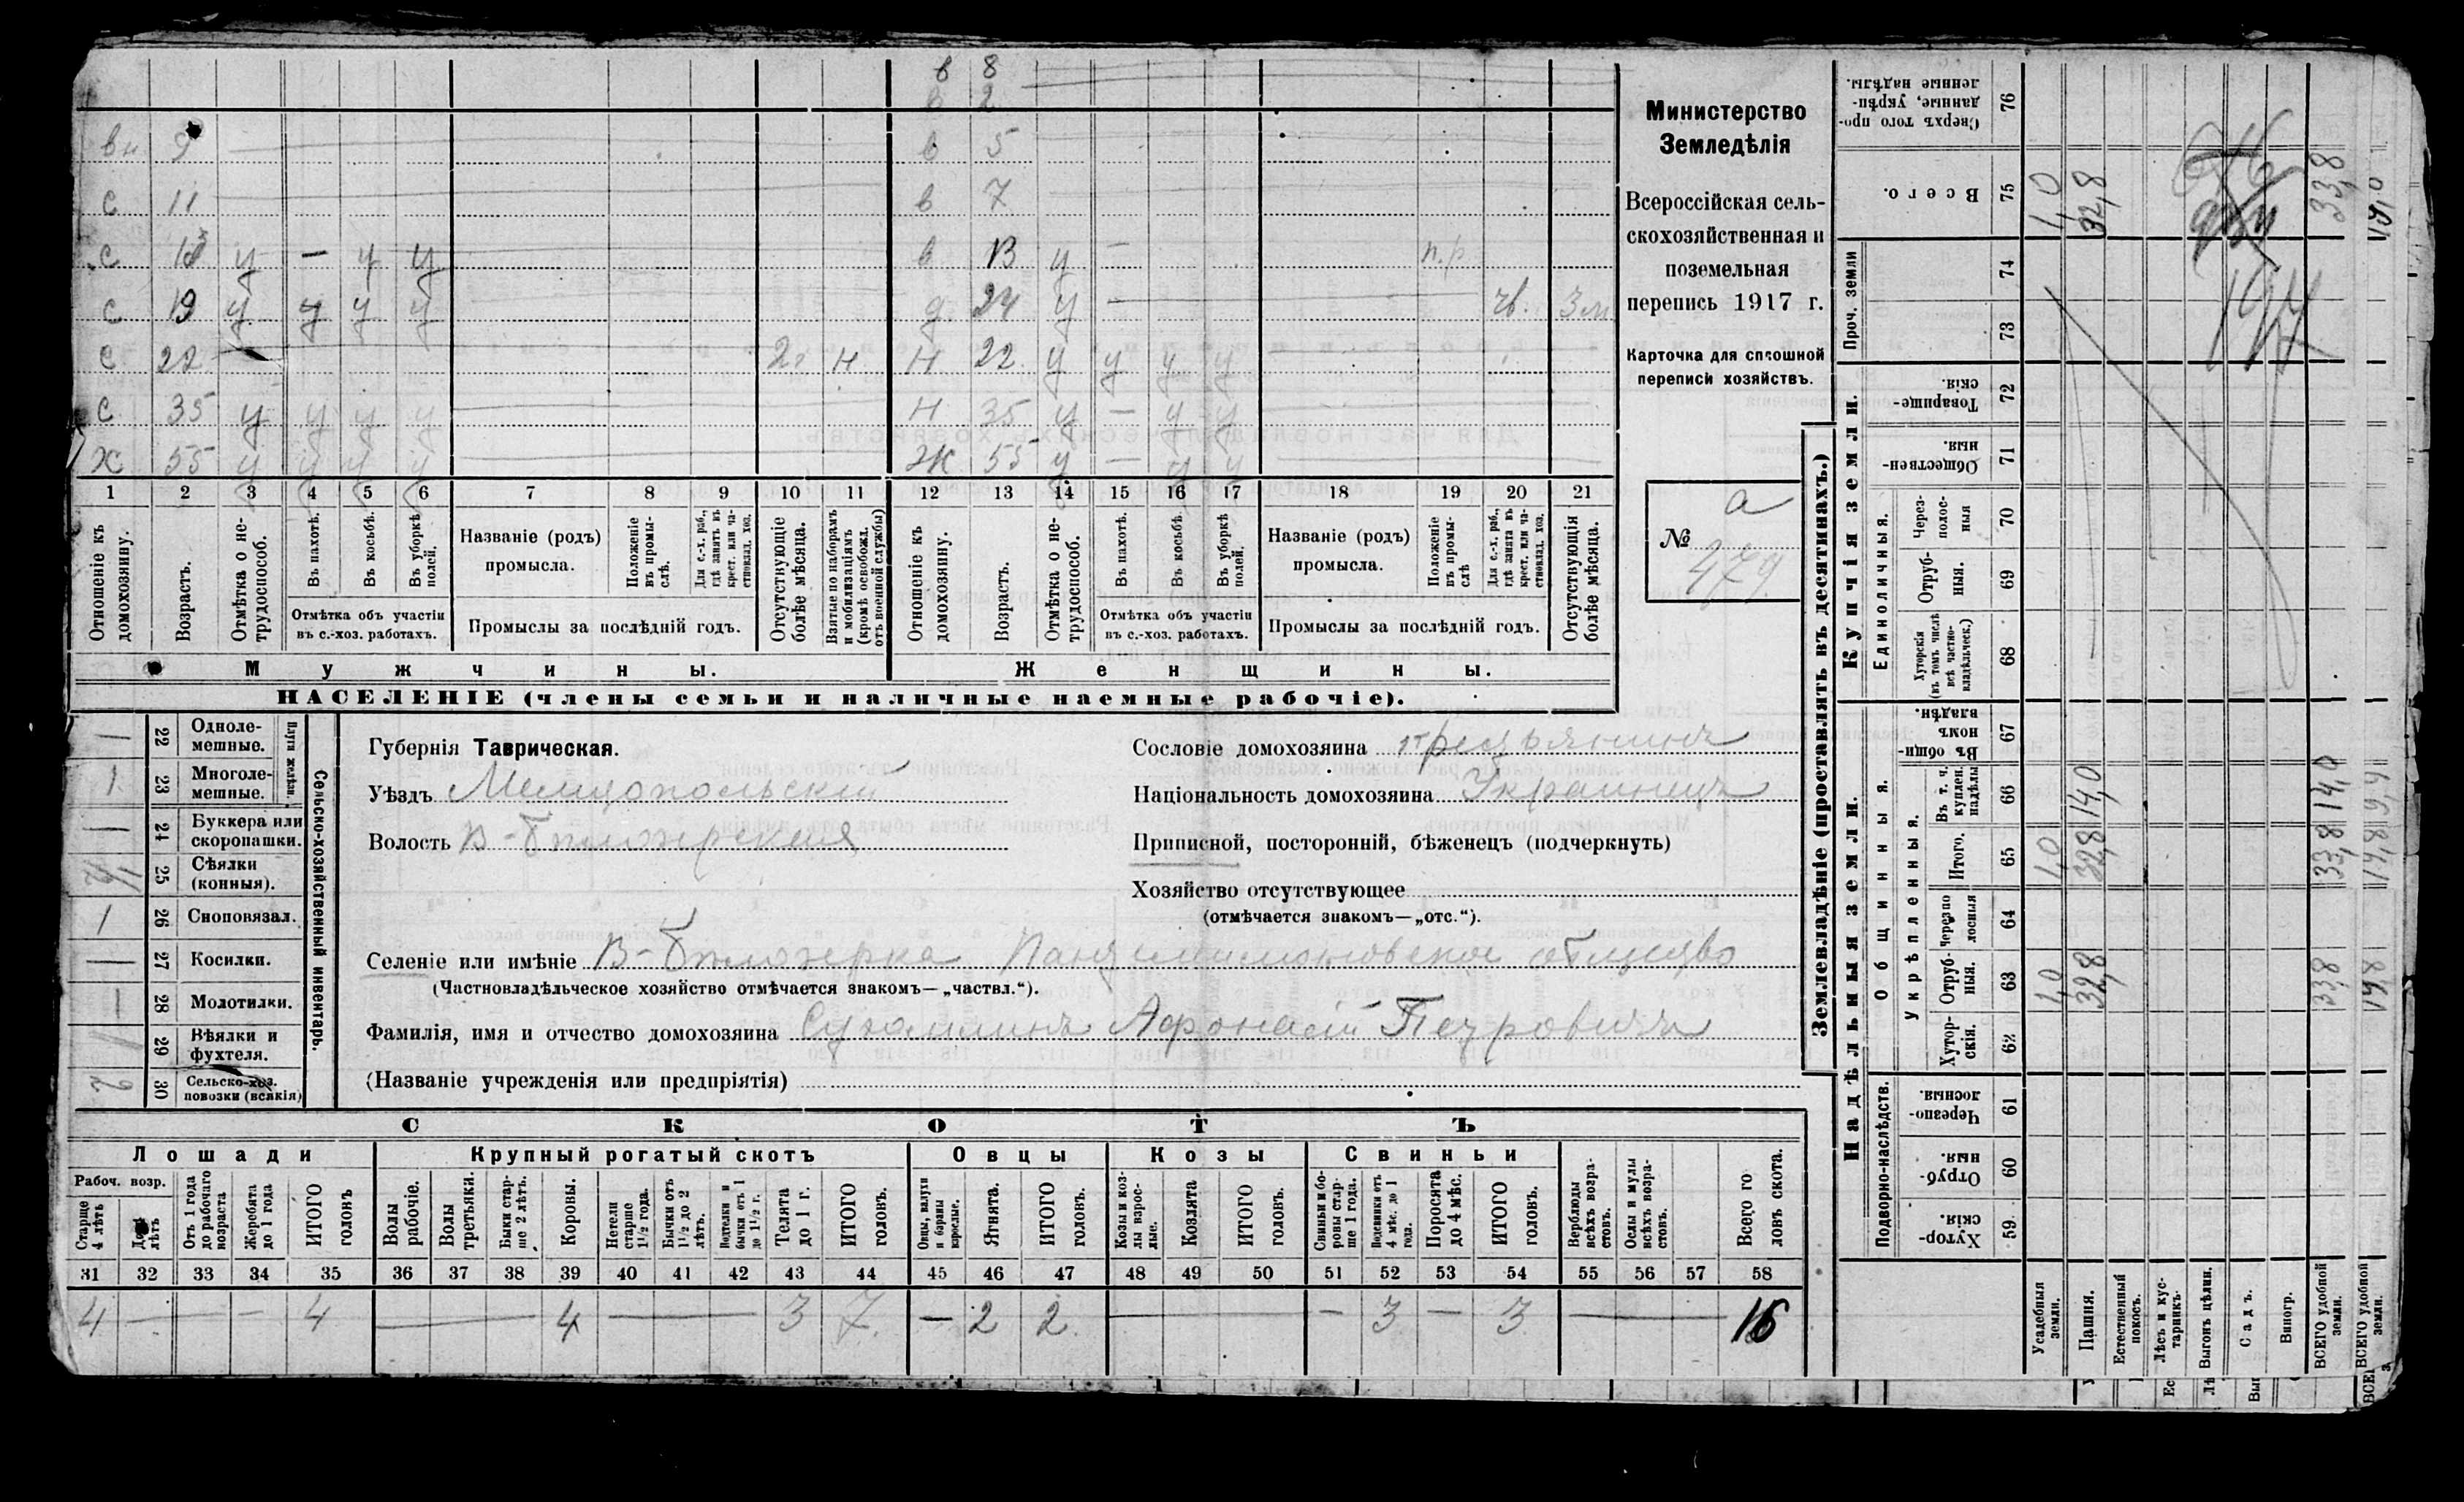 в 8
в 2
вн 9 в 5
с 11 в 7
с 13 у — у у в 13 у — п.р
с 19 у у у у д 24 у — чв. 3 м
с 22 — 2 г н н 22 у у у у
с 35 у у у у н 35 у — у у
х 55 у у у у ж 55 у — у у
1 2 3 4 5 6 7 8 9 10 11 12 13 14 15 16 17 18 19 20 21
Отношеніе къ домохозяину.
Возрастъ.
Отмѣтка о не-трудоспособ.
Въ пахотѣ.
Въ косьбѣ.
Въ уборкѣ полей.
Отмѣтка объ участіи въ с.-хоз. работахъ.
Названіе (родъ) промысла.
Положеніе въ промы-слѣ.
Для с.-х. раб., гдѣ занятъ въ крест. или ча-стновлад. хоз.
Промыслы за послѣдній годъ.
Отсутствующіе болѣе мѣсяца.
Взятые по наборамъ и мобилизаціямъ (кромѣ освобожд. отъ военной службы)
Отношеніе къ домохозяину.
Возрастъ.
Отмѣтка о не-трудоспособ.
Въ пахотѣ.
Въ косьбѣ.
Въ уборкѣ полей.
Отмѣтка объ участіи въ с.-хоз. работахъ.
Названіе (родъ) промысла.
Положеніе въ промы-слѣ
Для с.-х. раб., гдѣ занята въ крест. или ча-стновлад. хоз.
Промыслы за послѣдній годъ.
Отсутствующія болѣе мѣсяца.
Мужчины.
Женщины.
НАСЕЛЕНІЕ (члены семьи и наличные наемные рабочіе).
Министерство
Земледѣлія
Всероссійская сель-
скохозяйственная и
поземельная
перепись 1917 г.
Карточка для сплошной
переписи хозяйствъ.
№ а
479
Сельско-хозяйственный инвентарь.
Плуги желѣзн.
— 22 Одноле-мешные.
1 23 Многоле-мешные.
— 24 Буккера или скоропашки.
25 Сѣялки (конныя).
1 26 Сноповязал.
— 27 Косилки.
— 28 Молотилки.
1 29 Вѣялки и фухтеля.
2 30 Сельско-хоз. повозки (всякія)
Губернія Таврическая.
Уѣздъ Мелитопольскій
Волость В-Бѣлозерская
Сословіе домохозяина крестьянинъ
Національность домохозяина Украинецъ
Приписной, посторонній, бѣженецъ (подчеркнуть)
Хозяйство отсутствующее
(отмѣчается знакомъ—„отс.“).
Селеніе или имѣніе В-Бѣлозерка общество
(Частновладѣльческое хозяйство отмѣчается знакомъ—„частвл.“).
Фамилія, имя и отчество домохозяина Сухомлинъ Афонасій Петровичъ
(Названіе учрежденія или предпріятія)
СКОТЪ
Лошади Крупный рогатый скотъ Овцы Козы Свиньи
Рабоч. возр.
Старше 4 лѣтъ
До 4 лѣтъ
Отъ 1 года до рабочаго возраста
Жеребята до 1 года
ИТОГО головъ
Волы рабочіе.
Волы третьяки.
Быки стар-ше 2 лѣтъ.
Коровы.
Нетели старше 1½ года.
Бычки отъ 1½ до 2 лѣтъ.
Подтелки и бычки отъ 1 до 1½ г.
Телята до 1 г.
ИТОГО головъ.
Овцы, валухи и бараны взрослые.
Ягнята.
ИТОГО головъ.
Козы и коз-лы взрос-лые.
Козлята
ИТОГО головъ.
Свиньи и бо-ровы стар-ше 1 года.
Подсвинки отъ 4 мѣс. до 1 года.
Поросята до 4 мѣс.
ИТОГО головъ.
Верблюды всѣхъ возра-стовъ.
Ослы и мулы всѣхъ возра-стовъ.
Всего го ловъ скота.
31 32 33 34 35 36 37 38 39 40 41 42 43 44 45 46 47 48 49 50 51 52 53 54 55 56 57 58
4 — — — 4 — 4 — 3 7 — 2 2 — — 3 — 3 — 16
Землевладѣніе (проставлять въ десятинахъ.)
Надѣльныя земли.
Купчія земли.
Подворно-наслѣдств.
Общинныя.
Укрѣпленныя.
Единоличныя.
Проч. земли
Хутор-скія. 59
Отруб-ныя. 60
Черезпо-лосныя. 61
Хутор-скія. 62
Отруб-ныя. 63
Черезпо лосныя 64
Итого. 65
Въ т. ч. куплен. надѣлы 66
Въ общи-номъ владѣн. 67
Хуторскія (въ томъ числѣ всѣ частно-владѣльческ.) 68
Отруб-ныя. 69
Через-полос-ныя 70
Обществен-ныя. 71
Товарище-скія. 72
73
74
Всего. 75
Сверхъ того про-данные, укрѣп-ленные надѣлы. 76
Усадебныя земли. 1,0 1,0 1,0
Пашня. 32,8 32,8 14,0 32,8
Естественный покосъ.
Лѣсъ и кус-тарникъ.
Выгонъ цѣлин.
Садъ.
Виногр.
ВСЕГО удобной земли. 33,8 33,8 14,0 33,8
ВСЕГО удобной земли. 19,8 19,8 9,9
1917